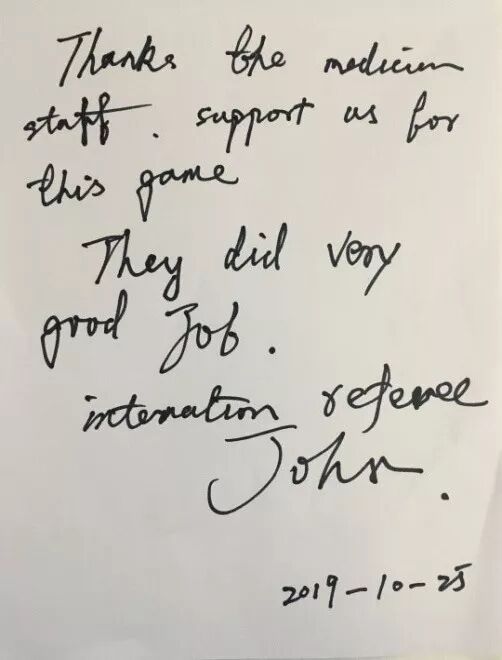 Thanks the medicien
staff. support us for
this game
They did very
good Job.
internation referee
John.
2019-10-25